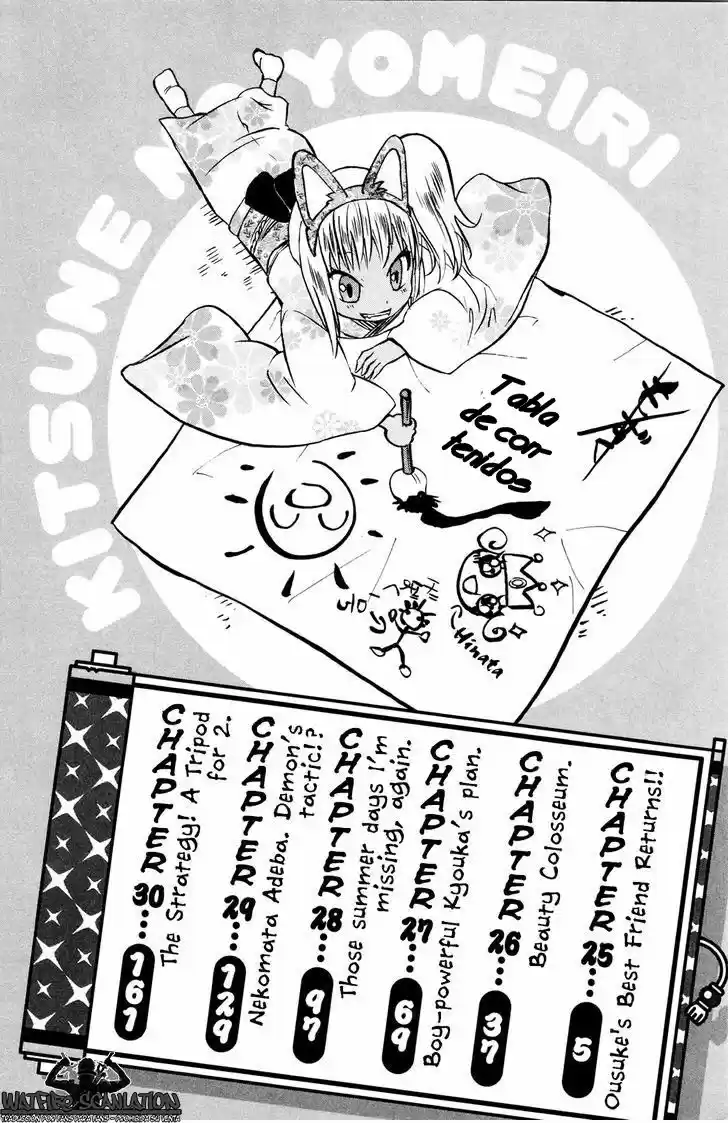 KITSUNE NO YOMEIRI
Tabla
de con
tenidos
Hinata
CHAPTER 25... 5
Ousuke's Best Friend Returns!!
CHAPTER 26... 37
Beauty Colosseum.
CHAPTER 27... 69
Boy-powerful Kyouka's plan.
CHAPTER 28... 97
Those summer days I'm
missing, again.
CHAPTER 29... 129
Nekomata Adeba. Demon's
tactic!?
CHAPTER 30... 161
The Strategy! A Tripod
for 2.